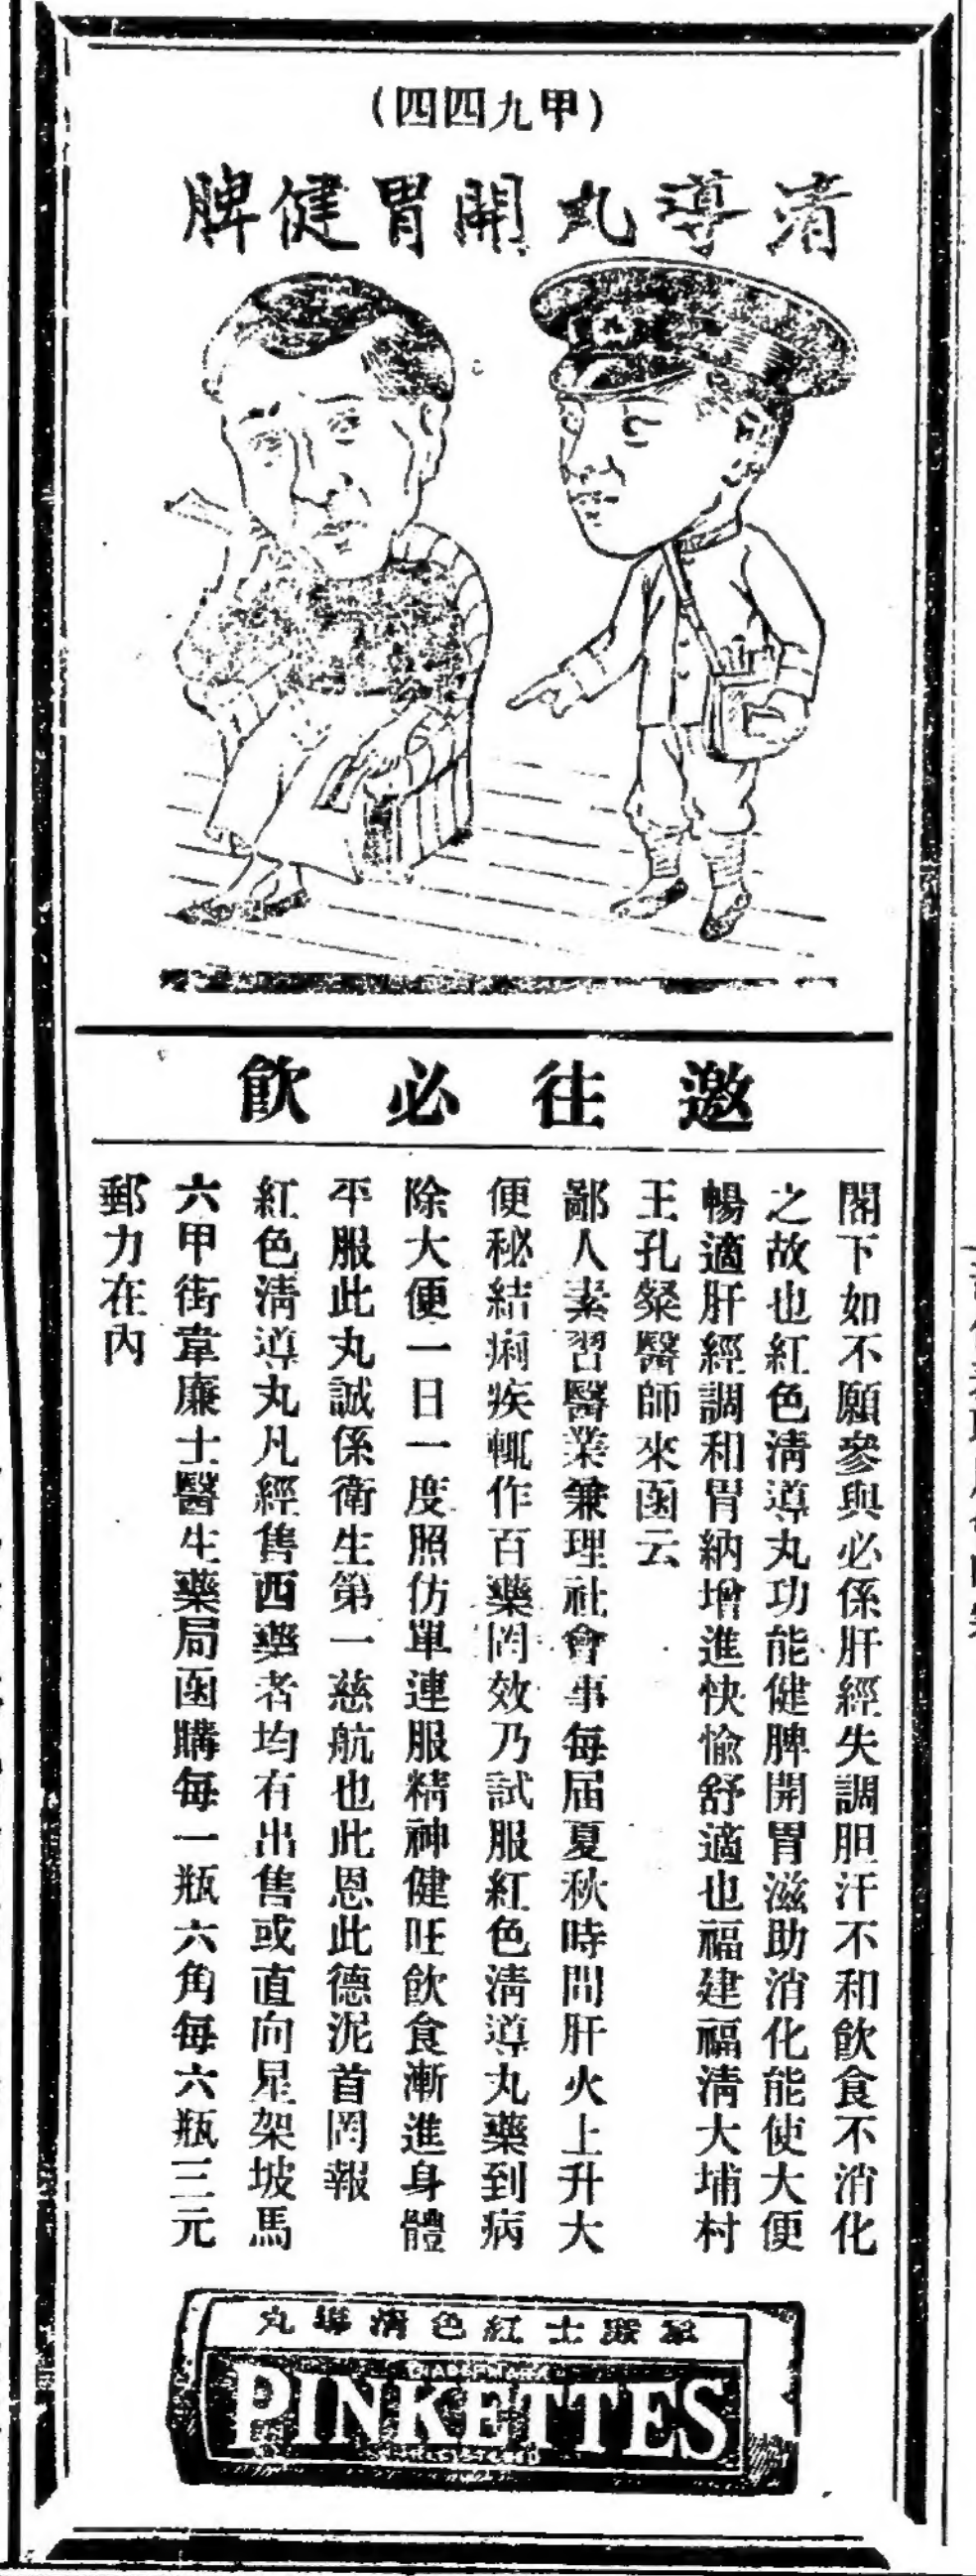 （甲九四四）
清導丸開胃健脾
邀往必飲
閣下如不願參與必係肝經失調胆汁不和飲食不消化
之故也紅色清導丸功能健脾開胃滋助消化能使大便
暢適肝經調和胃納增進快愉舒適也福建福清大埔村
王孔粲醫師來函云
鄙人素習醫業兼理社會事每届夏秋時間肝火上升大
便秘結痢疾輒作百藥罔效乃試服紅色清導丸藥到病
除大便一日一度照仿單連服精神健旺飲食漸進身體
平服此丸誠係衛生第一慈航也此恩此德泥首罔報
紅色清導丸凡經售西藥者均有出售或直向星架坡馬
六甲街韋廉士醫生藥局函購每一瓶六角每六瓶三元
郵力在內
士紅色清導丸
TRADE MARK
PINKETTES